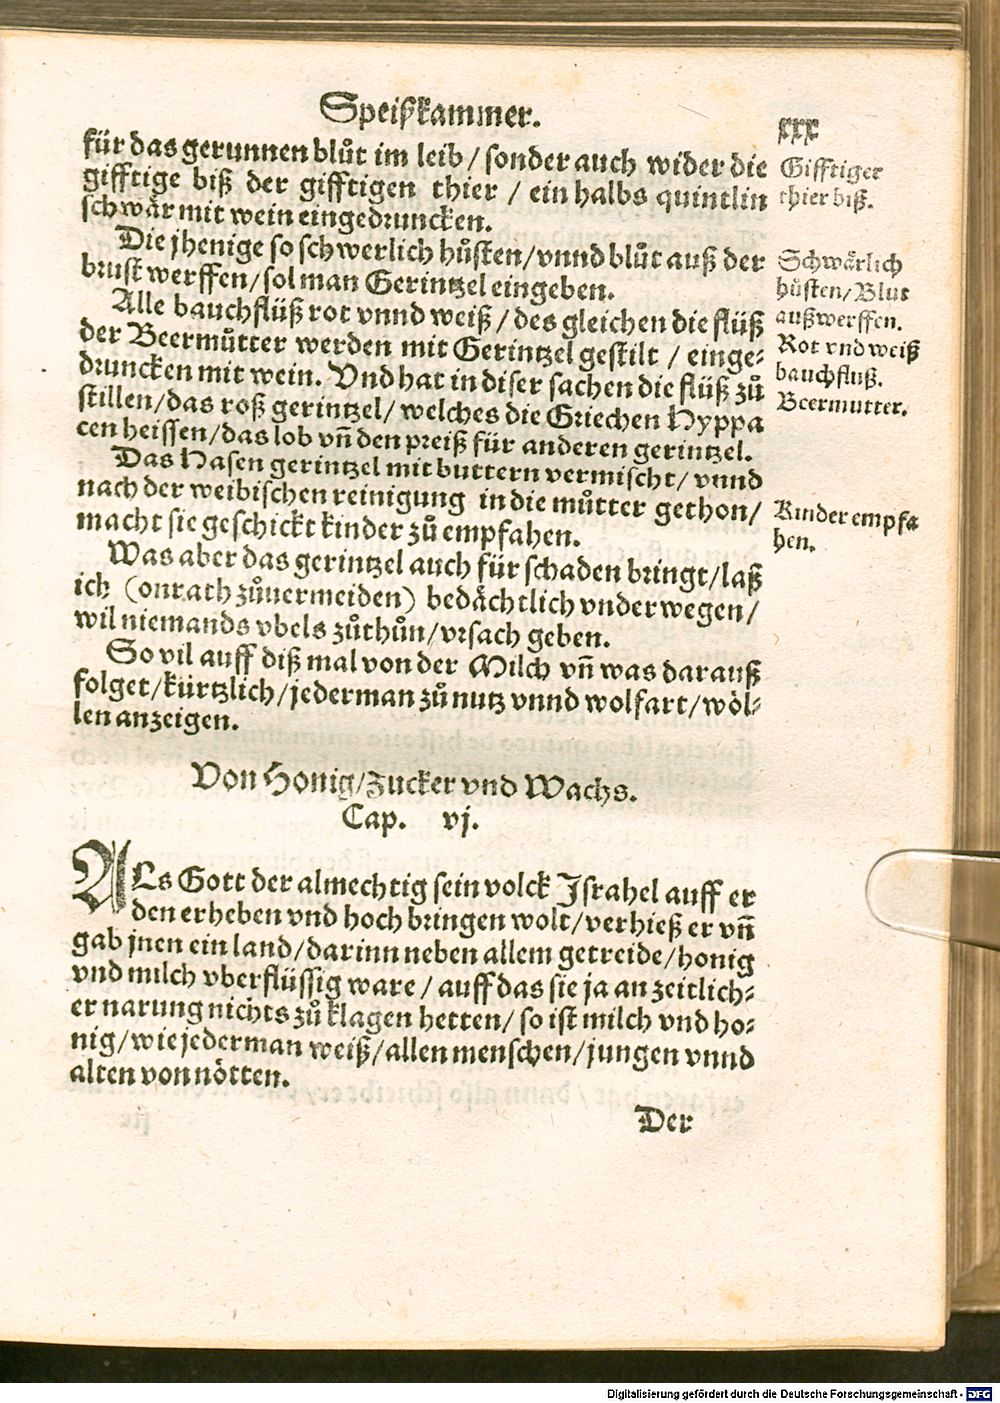 Speißkammer.
xxx
für das gerunnen blůt im leib / sonder auch wider die
gifftige biß der gifftigen thier / ein halbs quintlin
schwär mit wein eingedruncken.
Gifftiger
thier biß.
Die jhenige so schwerlich hůsten/vnnd blůt auß der
brust werffen/sol man Gerintzel eingeben.
Schwärlich
hůsten/Blut
außwerffen.
Alle bauchflüß rot vnnd weiß / des gleichen die flüß
der Beermůtter werden mit Gerintzel gestilt / einge-
druncken mit wein. Vnd hat in diser sachen die flüß zů
stillen/das roß gerintzel/ welches die Griechen Hyppa
cen heissen/das lob vñ den preiß für anderen gerintzel.
Rot vnd weiß
bauchfluß.
Beermutter.
Das Hasen gerintzel mit buttern vermischt/ vnnd
nach der weibischen reinigung in die můtter gethon/
macht sie geschickt kinder zů empfahen.
Kinder empfa
hen.
Was aber das gerintzel auch für schaden bringt/laß
ich (onrath zůuermeiden) bedächtlich vnderwegen/
wil niemands vbels zůthůn/vrsach geben.
So vil auff diß mal von der Milch vñ was darauß
folget/kürtzlich/jederman zů nutz vnnd wolfart/wöl-
len anzeigen.
Von Honig/Zucker vnd Wachs.
Cap. vj.
ALs Gott der almechtig sein volck Israhel auff er
den erheben vnd hoch bringen wolt/verhieß er vñ
gab jnen ein land/darinn neben allem getreide/honig
vnd milch vberflüssig ware / auff das sie ja an zeitlich-
er narung nichts zů klagen hetten/ so ist milch vnd ho-
nig/wie jederman weiß/allen menschen/jungen vnnd
alten von nötten.
Der
Digitalisierung gefördert durch die Deutsche Forschungsgemeinschaft - DFG